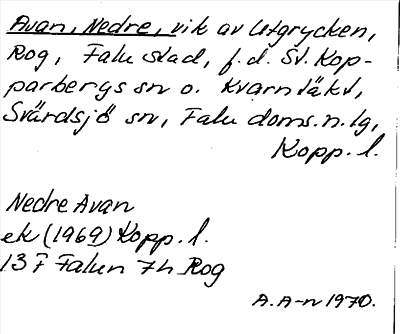 Avan, Nedre, vik av Utgrycken,
Rog, Falu stad, f.d. St. Kop-
parbergs sn o. Kvarntäkt,
Svärdsjö sn, Falu doms.n.lg,
Kopp. l.
Nedre Avan
ek (1969) Kopp. l.
13 F Falun 7h Rog
A. A-n 1970.